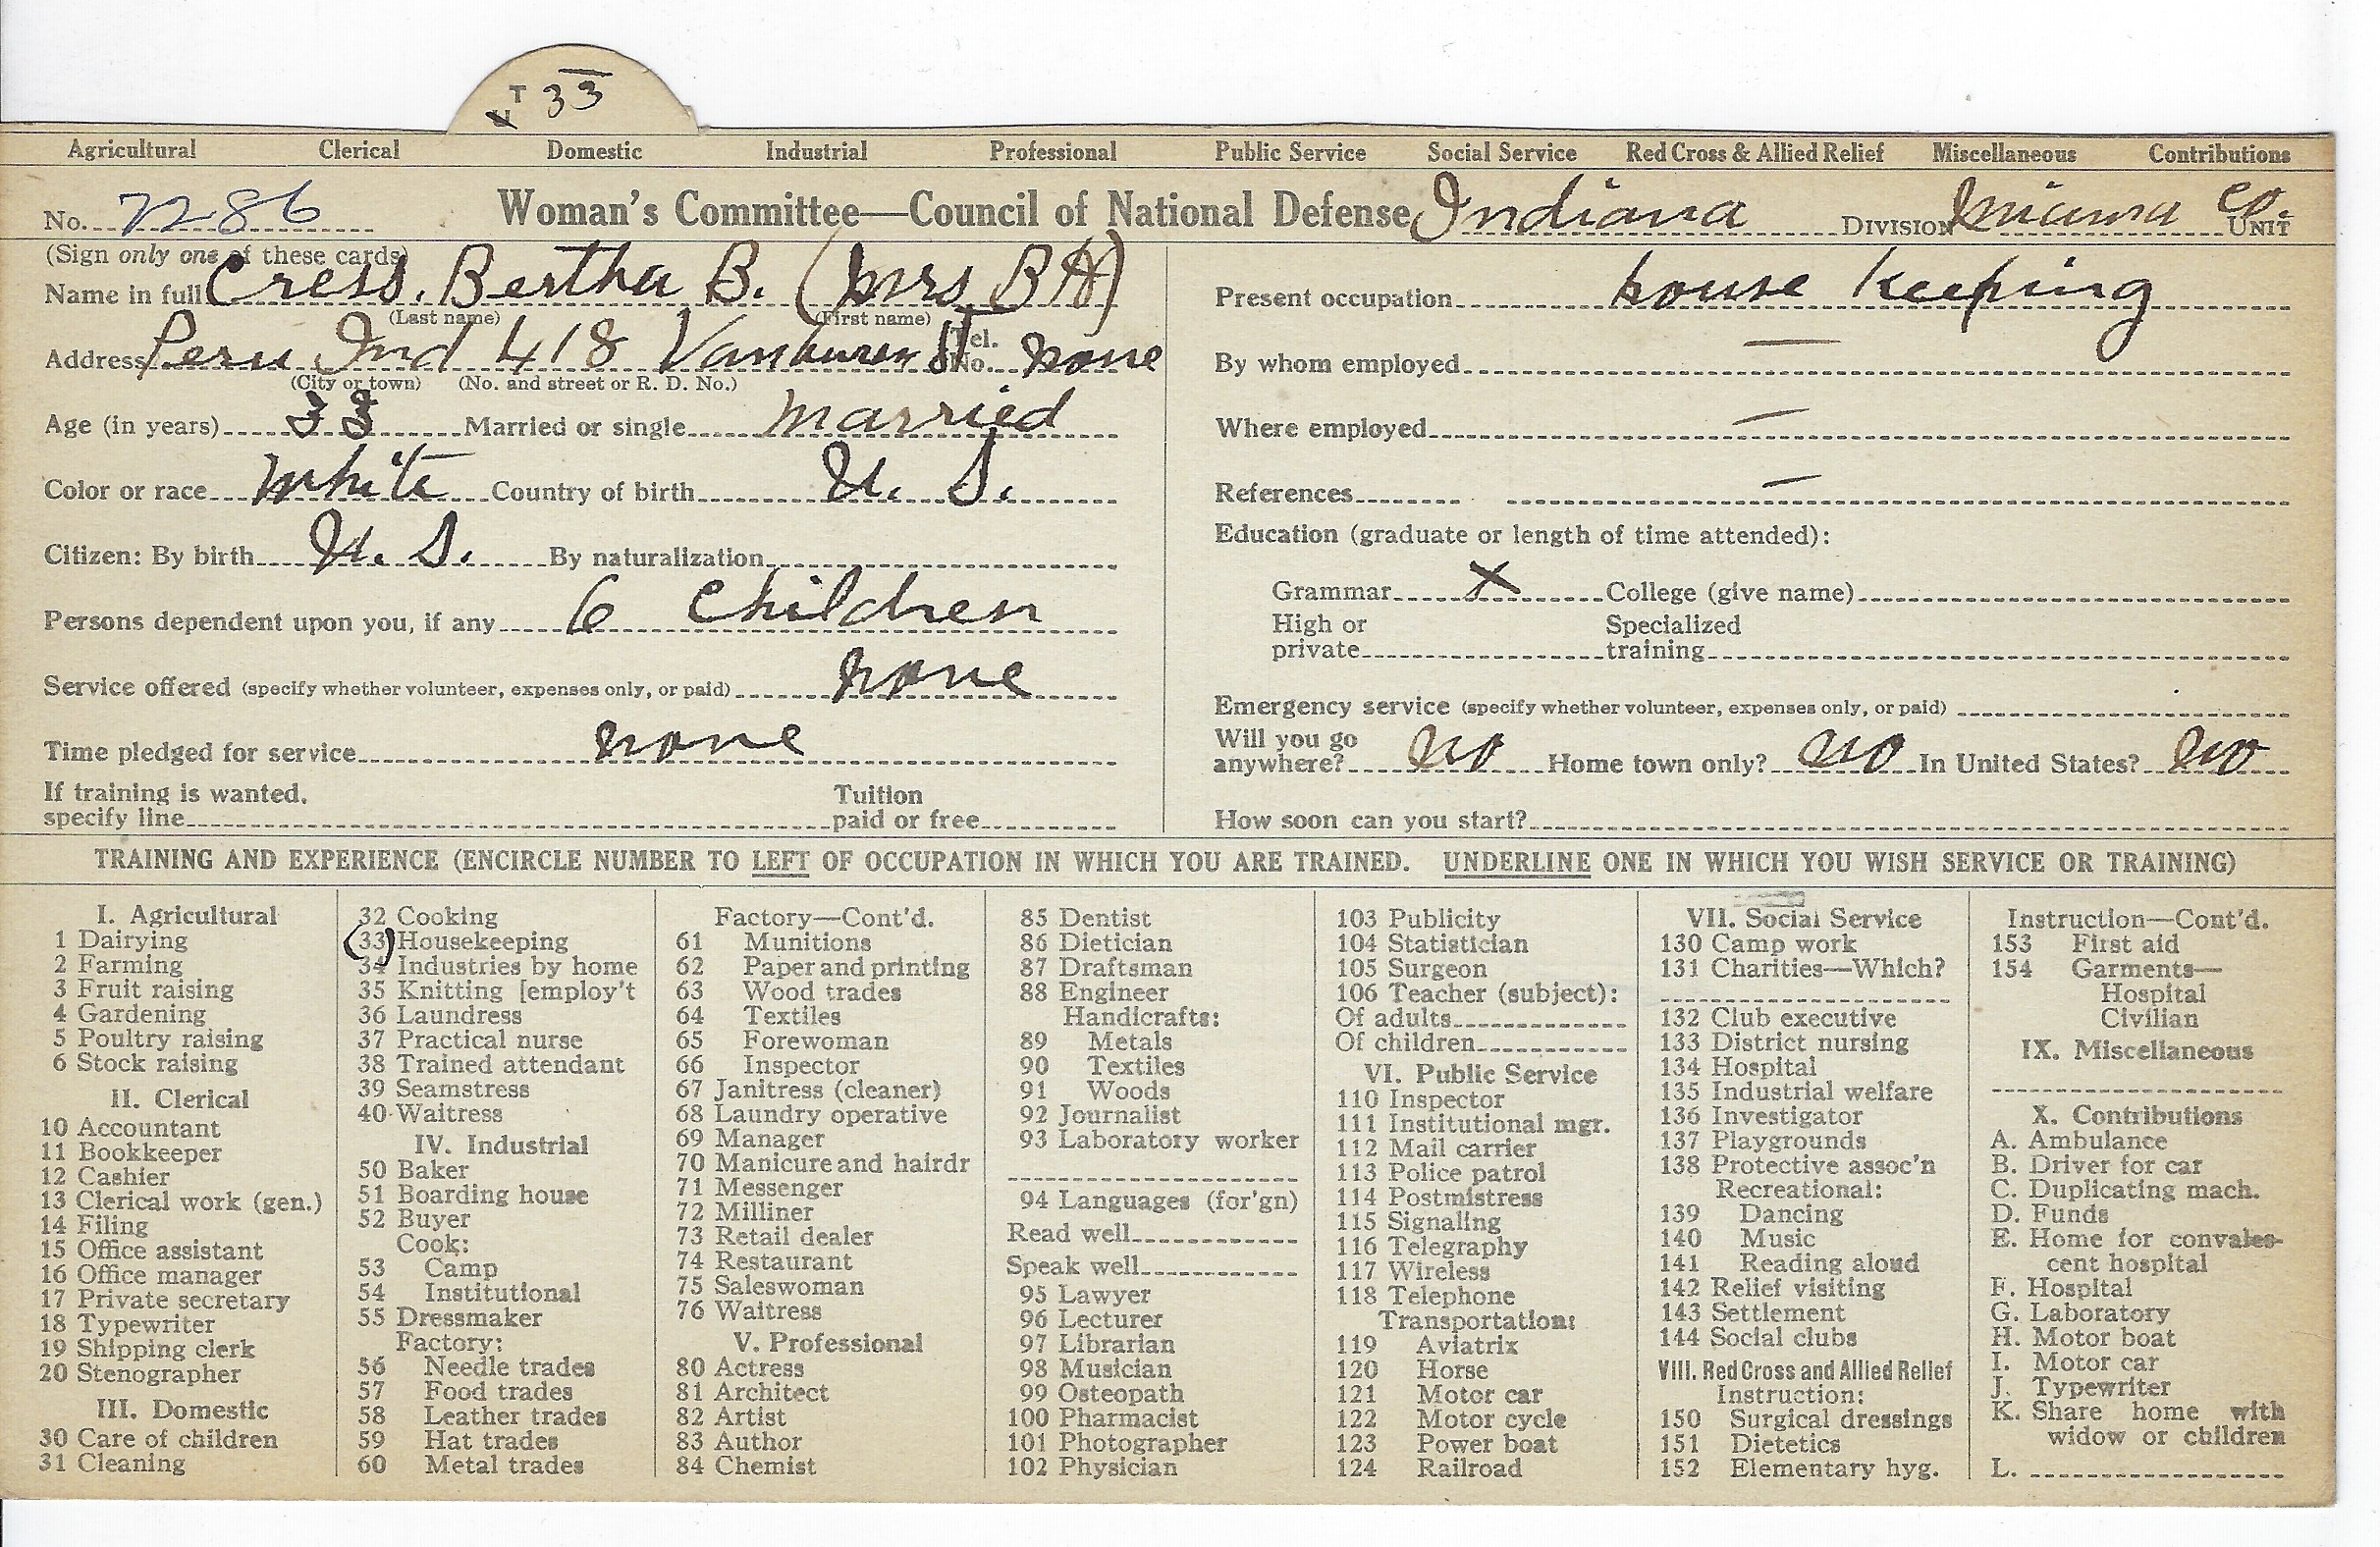 T 33
U
Agricultural Clerical Domestic Industrial Professional Public Service Social Service Red Cross & Allied Relief Miscellaneous Contributions
No. 7286 Woman's Committee—Council of National Defense Indiana DIVISION Miami Co. UNIT
(Sign only one of these cards)
Name in full Cress, Bertha B. (Mrs B H)
(Last name) (First name)
Address Peru Ind 418 Vanburen St Tel. No. none
(City or town) (No. and street or R. D. No.)
Age (in years) 33 Married or single married
Color or race White Country of birth U. S.
Citizen: By birth U. S. By naturalization
Persons dependent upon you, if any 6 Children
Service offered (specify whether volunteer, expenses only, or paid) none
Time pledged for service none
If training is wanted, Tuition
specify line paid or free
Present occupation house keeping
By whom employed —
Where employed —
References —
Education (graduate or length of time attended):
Grammar X College (give name)
High or Specialized
private training
Emergency service (specify whether volunteer, expenses only, or paid)
Will you go
anywhere? no Home town only? no In United States? no
How soon can you start?
TRAINING AND EXPERIENCE (ENCIRCLE NUMBER TO LEFT OF OCCUPATION IN WHICH YOU ARE TRAINED. UNDERLINE ONE IN WHICH YOU WISH SERVICE OR TRAINING)
I. Agricultural
1 Dairying
2 Farming
3 Fruit raising
4 Gardening
5 Poultry raising
6 Stock raising
II. Clerical
10 Accountant
11 Bookkeeper
12 Cashier
13 Clerical work (gen.)
14 Filing
15 Office assistant
16 Office manager
17 Private secretary
18 Typewriter
19 Shipping clerk
20 Stenographer
III. Domestic
30 Care of children
31 Cleaning
32 Cooking
33 Housekeeping
34 Industries by home
35 Knitting [employ't
36 Laundress
37 Practical nurse
38 Trained attendant
39 Seamstress
40 Waitress
IV. Industrial
50 Baker
51 Boarding house
52 Buyer
Cook:
53 Camp
54 Institutional
55 Dressmaker
Factory:
56 Needle trades
57 Food trades
58 Leather trades
59 Hat trades
60 Metal trades
Factory—Cont'd.
61 Munitions
62 Paper and printing
63 Wood trades
64 Textiles
65 Forewoman
66 Inspector
67 Janitress (cleaner)
68 Laundry operative
69 Manager
70 Manicure and hairdr
71 Messenger
72 Milliner
73 Retail dealer
74 Restaurant
75 Saleswoman
76 Waitress
V. Professional
80 Actress
81 Architect
82 Artist
83 Author
84 Chemist
85 Dentist
86 Dietician
87 Draftsman
88 Engineer
Handicrafts:
89 Metals
90 Textiles
91 Woods
92 Journalist
93 Laboratory worker
94 Languages (for'gn)
Read well
Speak well
95 Lawyer
96 Lecturer
97 Librarian
98 Musician
99 Osteopath
100 Pharmacist
101 Photographer
102 Physician
103 Publicity
104 Statistician
105 Surgeon
106 Teacher (subject):
Of adults
Of children
VI. Public Service
110 Inspector
111 Institutional mgr.
112 Mail carrier
113 Police patrol
114 Postmistress
115 Signaling
116 Telegraphy
117 Wireless
118 Telephone
Transportation:
119 Aviatrix
120 Horse
121 Motor car
122 Motor cycle
123 Power boat
124 Railroad
VII. Social Service
130 Camp work
131 Charities—Which?
132 Club executive
133 District nursing
134 Hospital
135 Industrial welfare
136 Investigator
137 Playgrounds
138 Protective assoc'n
Recreational:
139 Dancing
140 Music
141 Reading aloud
142 Relief visiting
143 Settlement
144 Social clubs
VIII. Red Cross and Allied Relief
Instruction:
150 Surgical dressings
151 Dietetics
152 Elementary hyg.
Instruction—Cont'd.
153 First aid
154 Garments—
Hospital
Civilian
IX. Miscellaneous
X. Contributions
A. Ambulance
B. Driver for car
C. Duplicating mach.
D. Funds
E. Home for convales-
cent hospital
F. Hospital
G. Laboratory
H. Motor boat
I. Motor car
J. Typewriter
K. Share home with
widow or children
L.